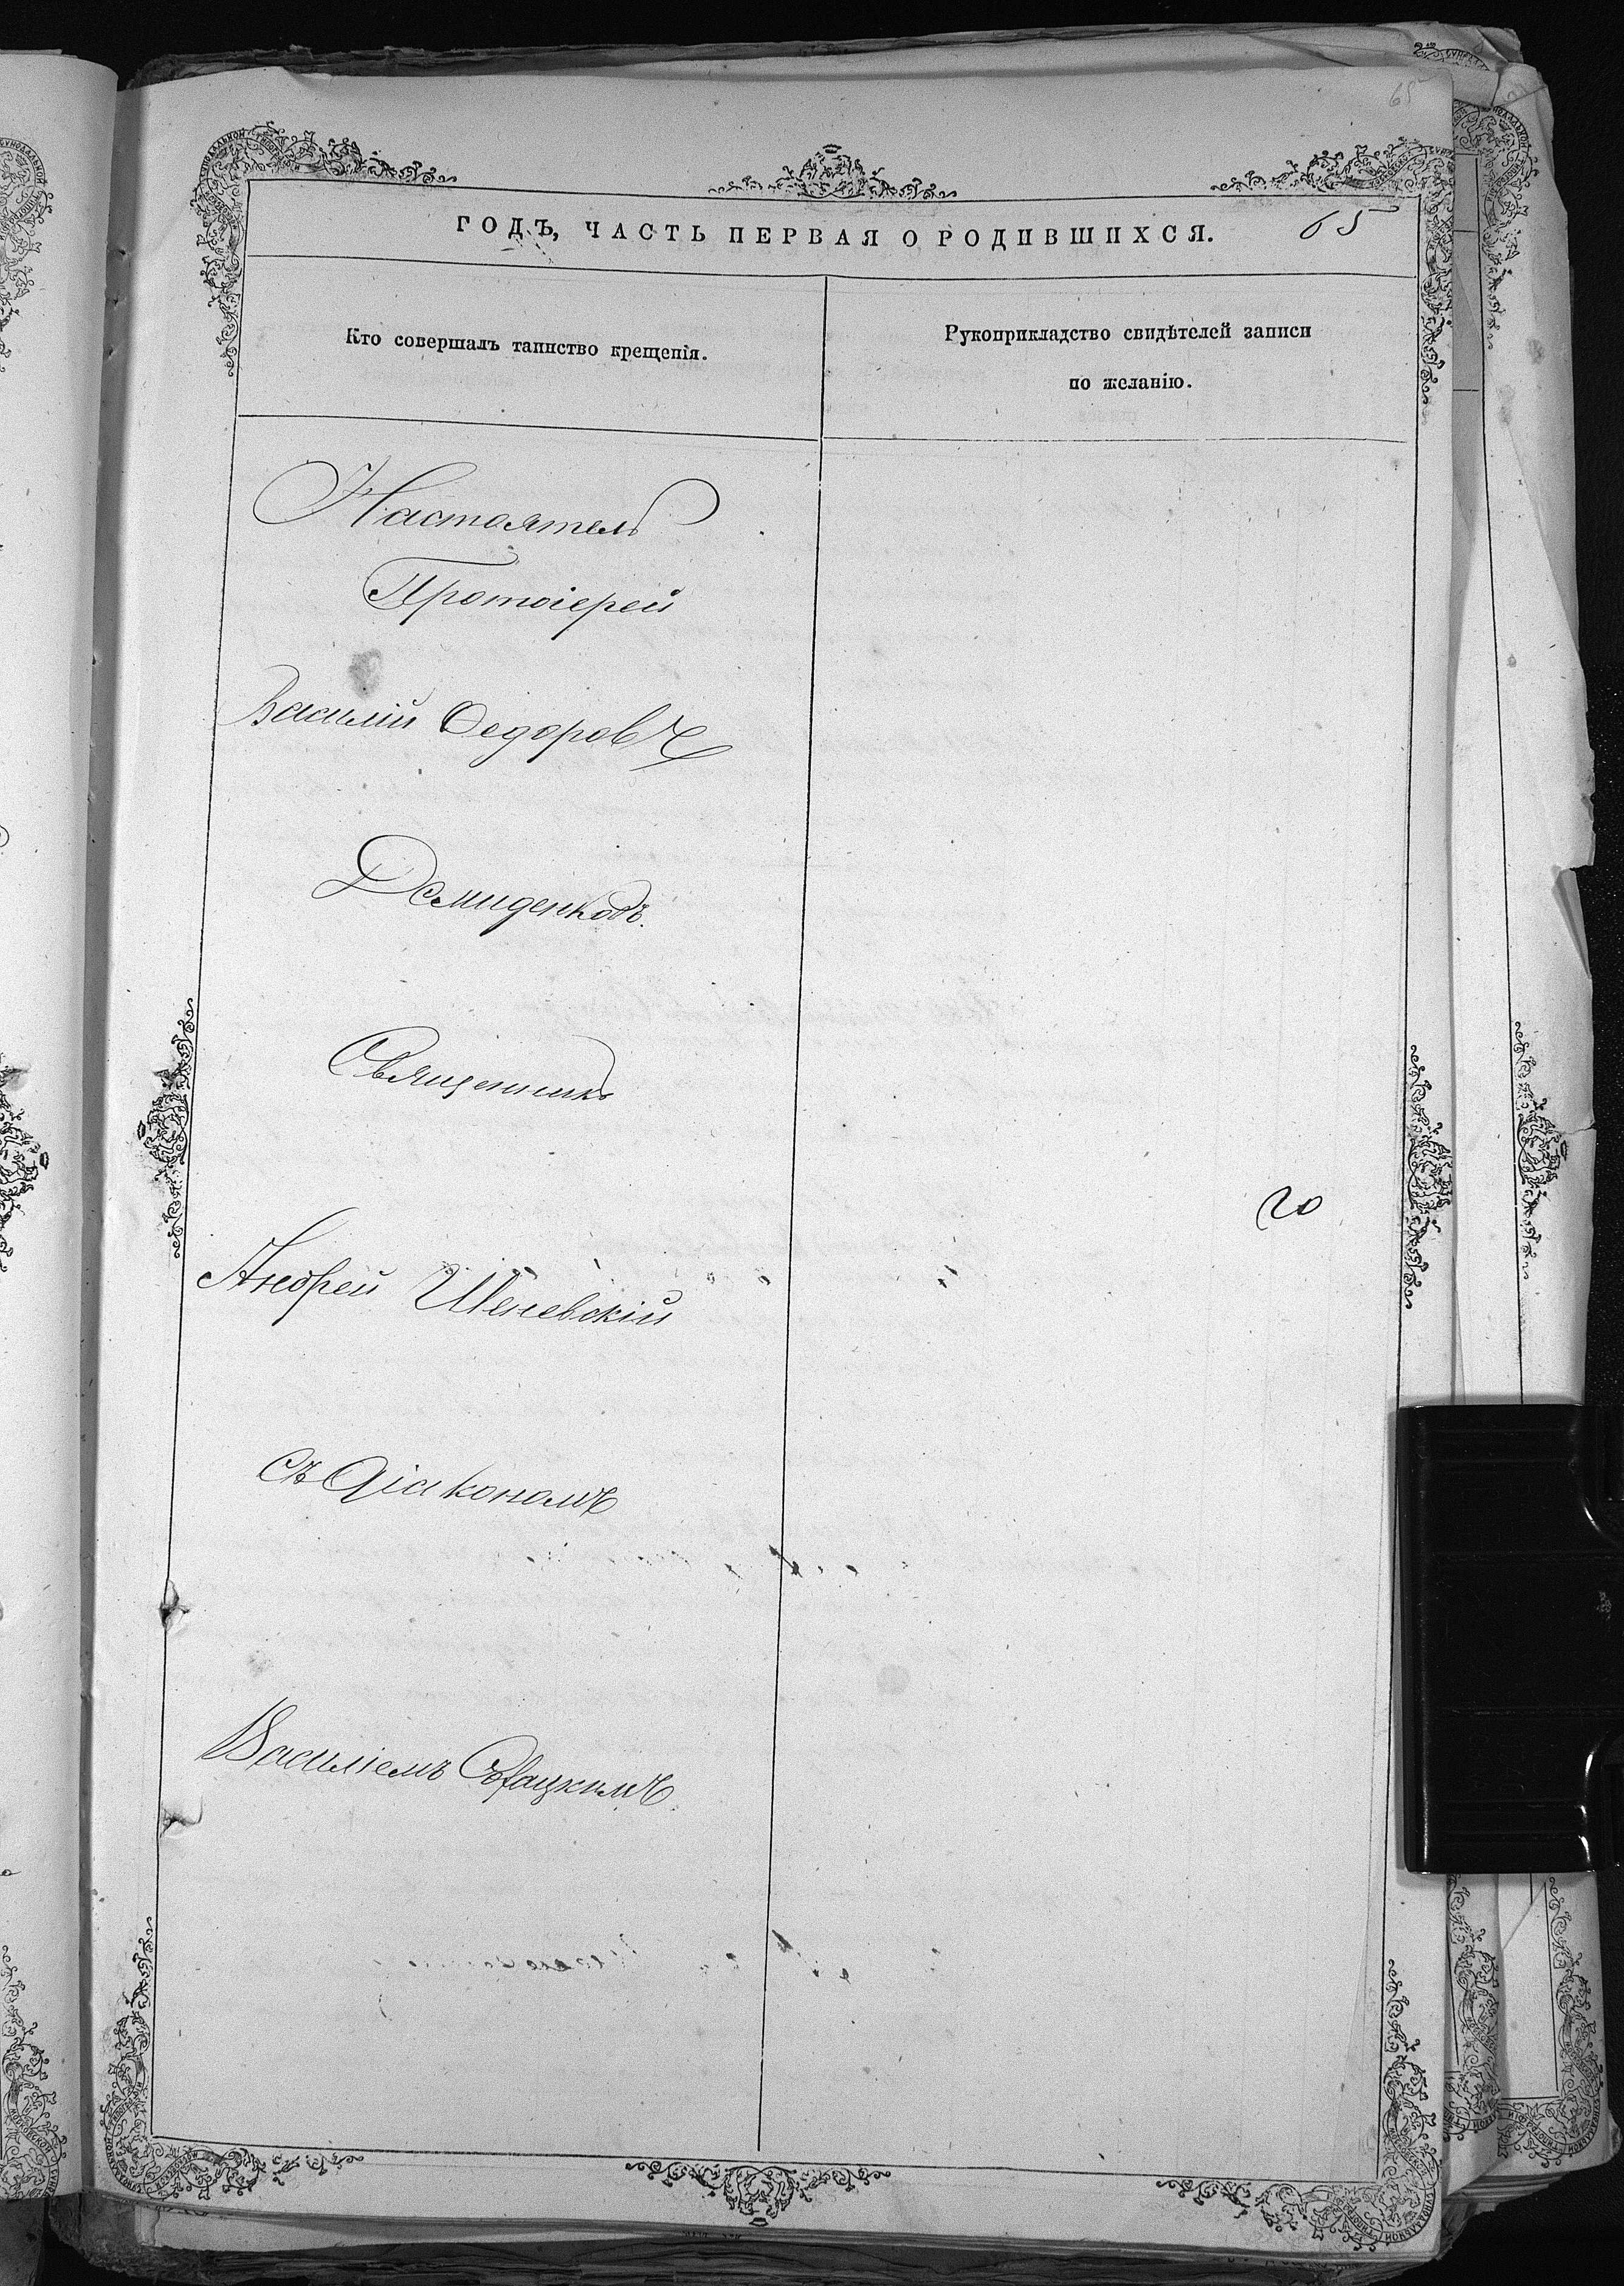 65
ГОДЪ, ЧАСТЬ ПЕРВАЯ О РОДИВШИХСЯ. 65
Кто совершалъ таинство крещенія.
Рукоприкладство свидѣтелей записи
по желанію.
Настоятель
Протоіерей
Василій Ѳедоровъ
Демиденковъ.
Священникъ
20
Андрей Шеневскій
съ Діакономъ
Василіемъ